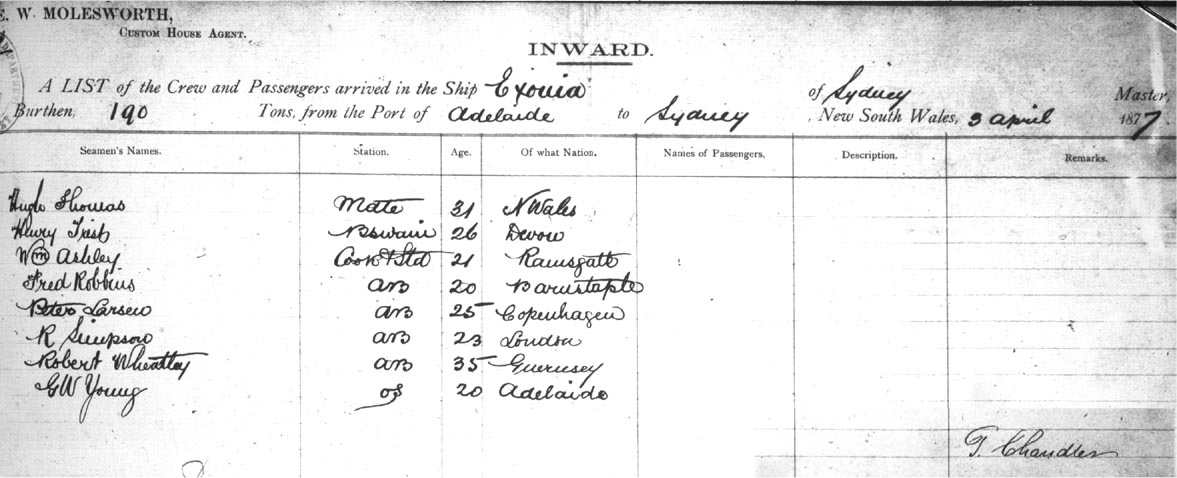 E. W. MOLESWORTH,
CUSTOM HOUSE AGENT.
INWARD.
A LIST of the Crew and Passengers arrived in the Ship Exonia of Sydney Master,
Burthen, 190 Tons, from the Port of Adelaide to Sydney , New South Wales, 3 April 1877.
Seamen's Names. Station. Age. Of what Nation. Names of Passengers. Description. Remarks.
Hugh Thomas Mate 31 N Wales
Henry Bswain 26 Devon
Wm Ashley Cook & Std 21 Ramsgate
Fred Robbins AB 20 Barnstaple
Peter Larsen AB 25 Copenhagen
R Simpson AB 23 London
Robert Wheatley AB 35 Guernsey
GW Young OS 20 Adelaide
T. Chandler